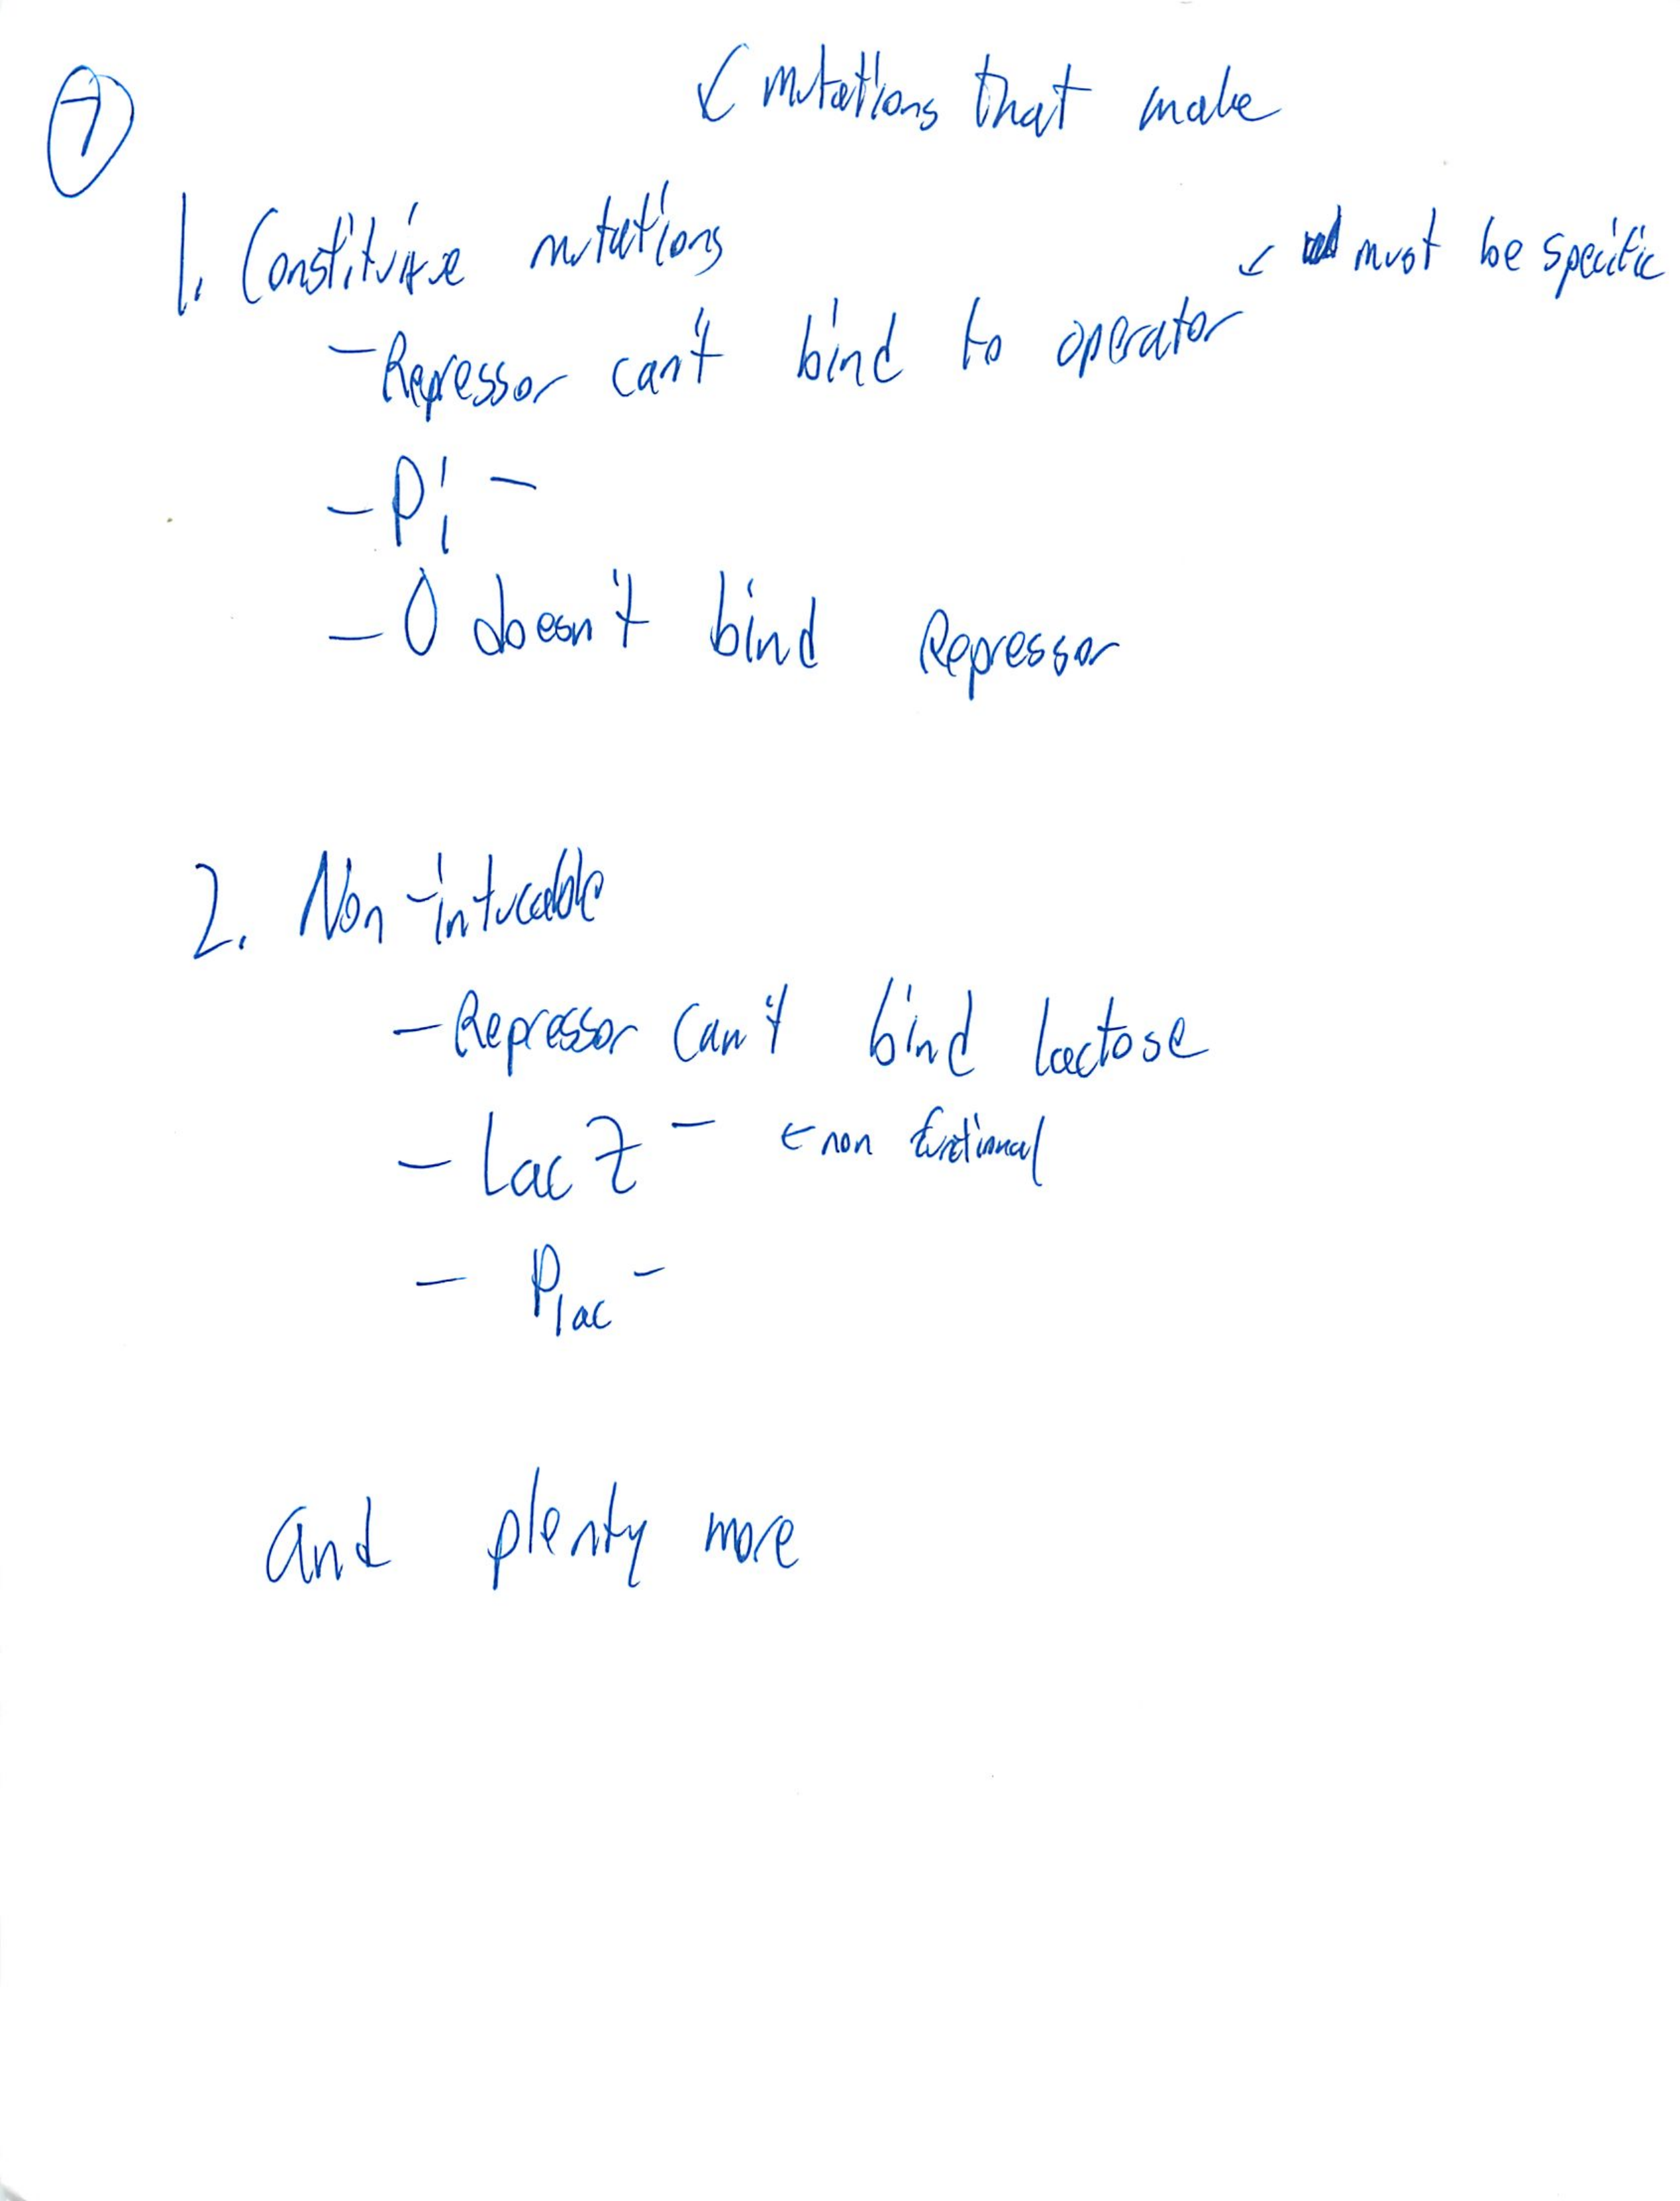 7
mutations that make
1. Constitutive mutations
← must be specific
- Repressor can't bind to operator
- Pi -
- O doesn't bind Repressor
2. Non-inducable
- Repressor can't bind lactose
- Lac Z - ← non functional
- Plac -
and plenty more